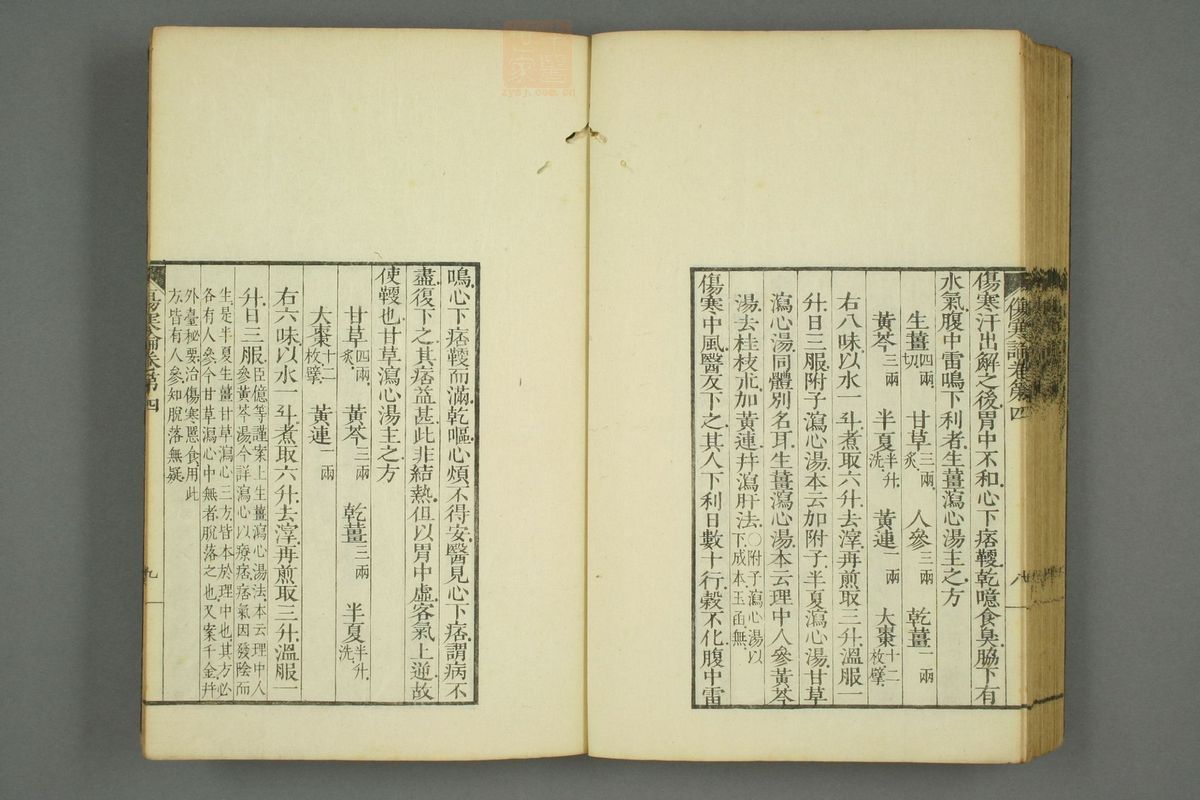 傷寒論卷第四
八
傷寒汗出解之後胃中不和心下痞鞕乾噫食臭脇下有
水氣腹中雷鳴下利者生薑瀉心湯主之方
生薑四兩切 甘草三兩炙 人參三兩 乾薑一兩
黃芩三兩 半夏半升洗 黃連一兩 大棗十二枚擘
右八味以水一斗煮取六升去滓再煎取三升溫服一
升日三服附子瀉心湯本云加附子半夏瀉心湯甘草
瀉心湯同體別名耳生薑瀉心湯本云理中人參黃芩
湯去桂枝朮加黃連并瀉肝法〇附子瀉心湯以下成本玉函無
傷寒中風醫反下之其人下利日數十行穀不化腹中雷
鳴心下痞鞕而滿乾嘔心煩不得安醫見心下痞謂病不
盡復下之其痞益甚此非結熱但以胃中虛客氣上逆故
使鞕也甘草瀉心湯主之方
甘草四兩炙 黃芩三兩 乾薑三兩 半夏半升洗
大棗十二枚擘 黃連一兩
右六味以水一斗煮取六升去滓再煎取三升溫服一
升日三服臣億等謹案上生薑瀉心湯法本云理中人參黃芩湯今詳瀉心以療痞痞氣因發陰而
生是半夏生薑甘草瀉心三方皆本於理中也其方必
各有人參今甘草瀉心中無者脫落之也又案千金并
外臺祕要治傷寒䘌食用此
方皆有人參知脫落無疑
傷寒論卷第四
九
zysj.com.cn